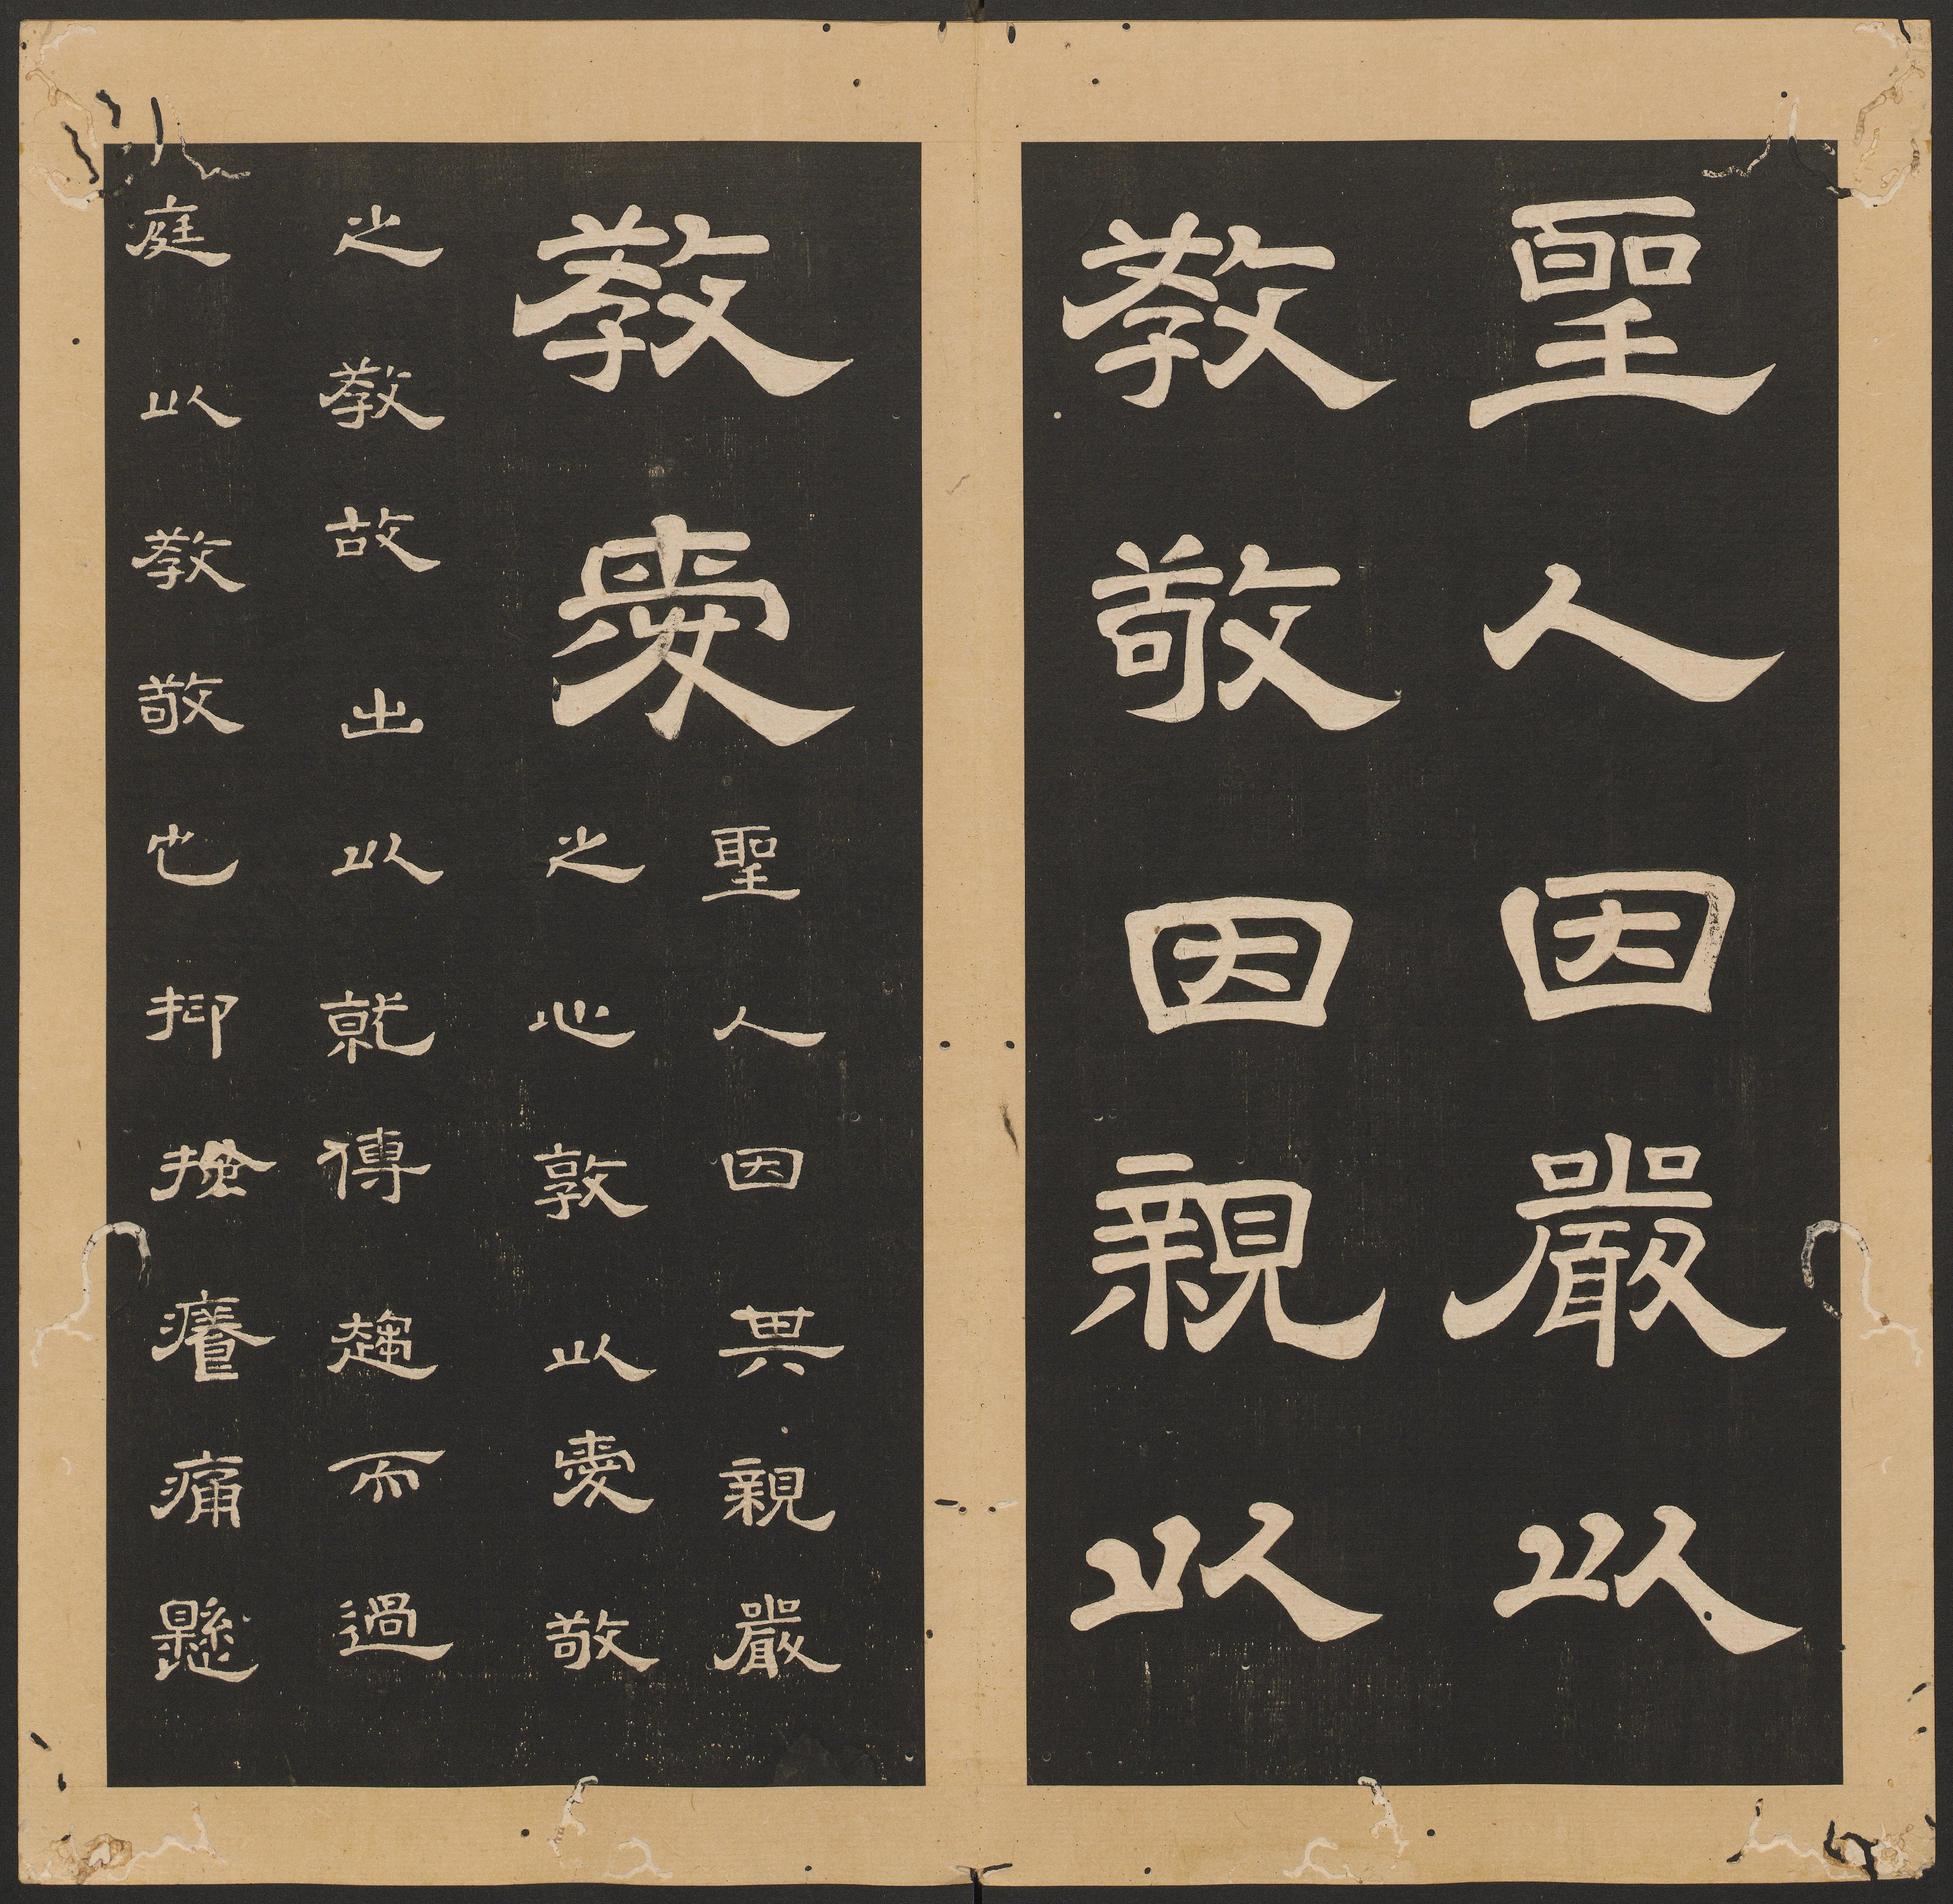 聖人因嚴以
教敬因親以
教愛
聖人因其親嚴
之心敦以愛敬
之教故出以就傳趨而過
庭以教敬也抑搔癢痛懸